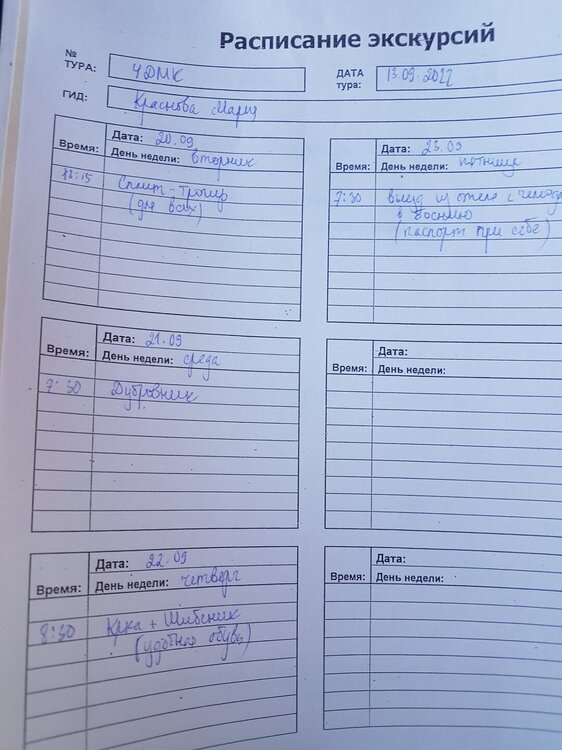 Расписание экскурсий
№
ТУРА:
ЧДМК
ДАТА
тура:
13.09.2022
ГИД:
Краснова Мария
Время:
Дата: 20.09
День недели: вторник
13:15
Сплит-Трогир
(для всех)
Время:
Дата: 21.09
День недели: среда
7:30
Дубровник
Время:
Дата: 22.09
День недели: четверг
8:30
Крка + Шибеник
(удобная обувь)
Время:
Дата: 23.09
День недели: пятница
7:30
выезд из отеля с
в Боснию
(паспорт при себе)
Время:
Дата:
День недели:
Время:
Дата:
День недели: